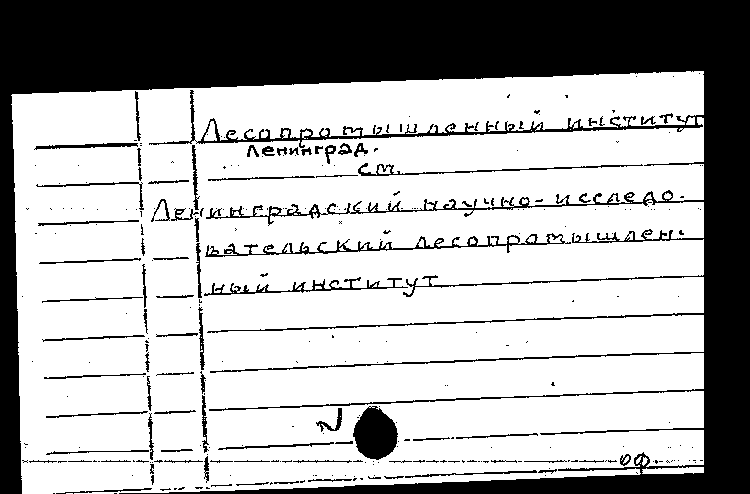 Лесопромышленный институт
Ленинград.
см.
Ленинградский научно-исследо-
вательский лесопромышлен-
ный институт
оф.